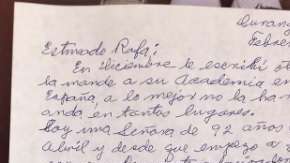 Durang
Febrer
Estimado Rafa;
En Diciembre le escribí ot
la mande a su Academia en
España, a lo mejor no la ha
anda en tantos lugares.
Soy una señora de 92 años
Abril y desde que empezo a